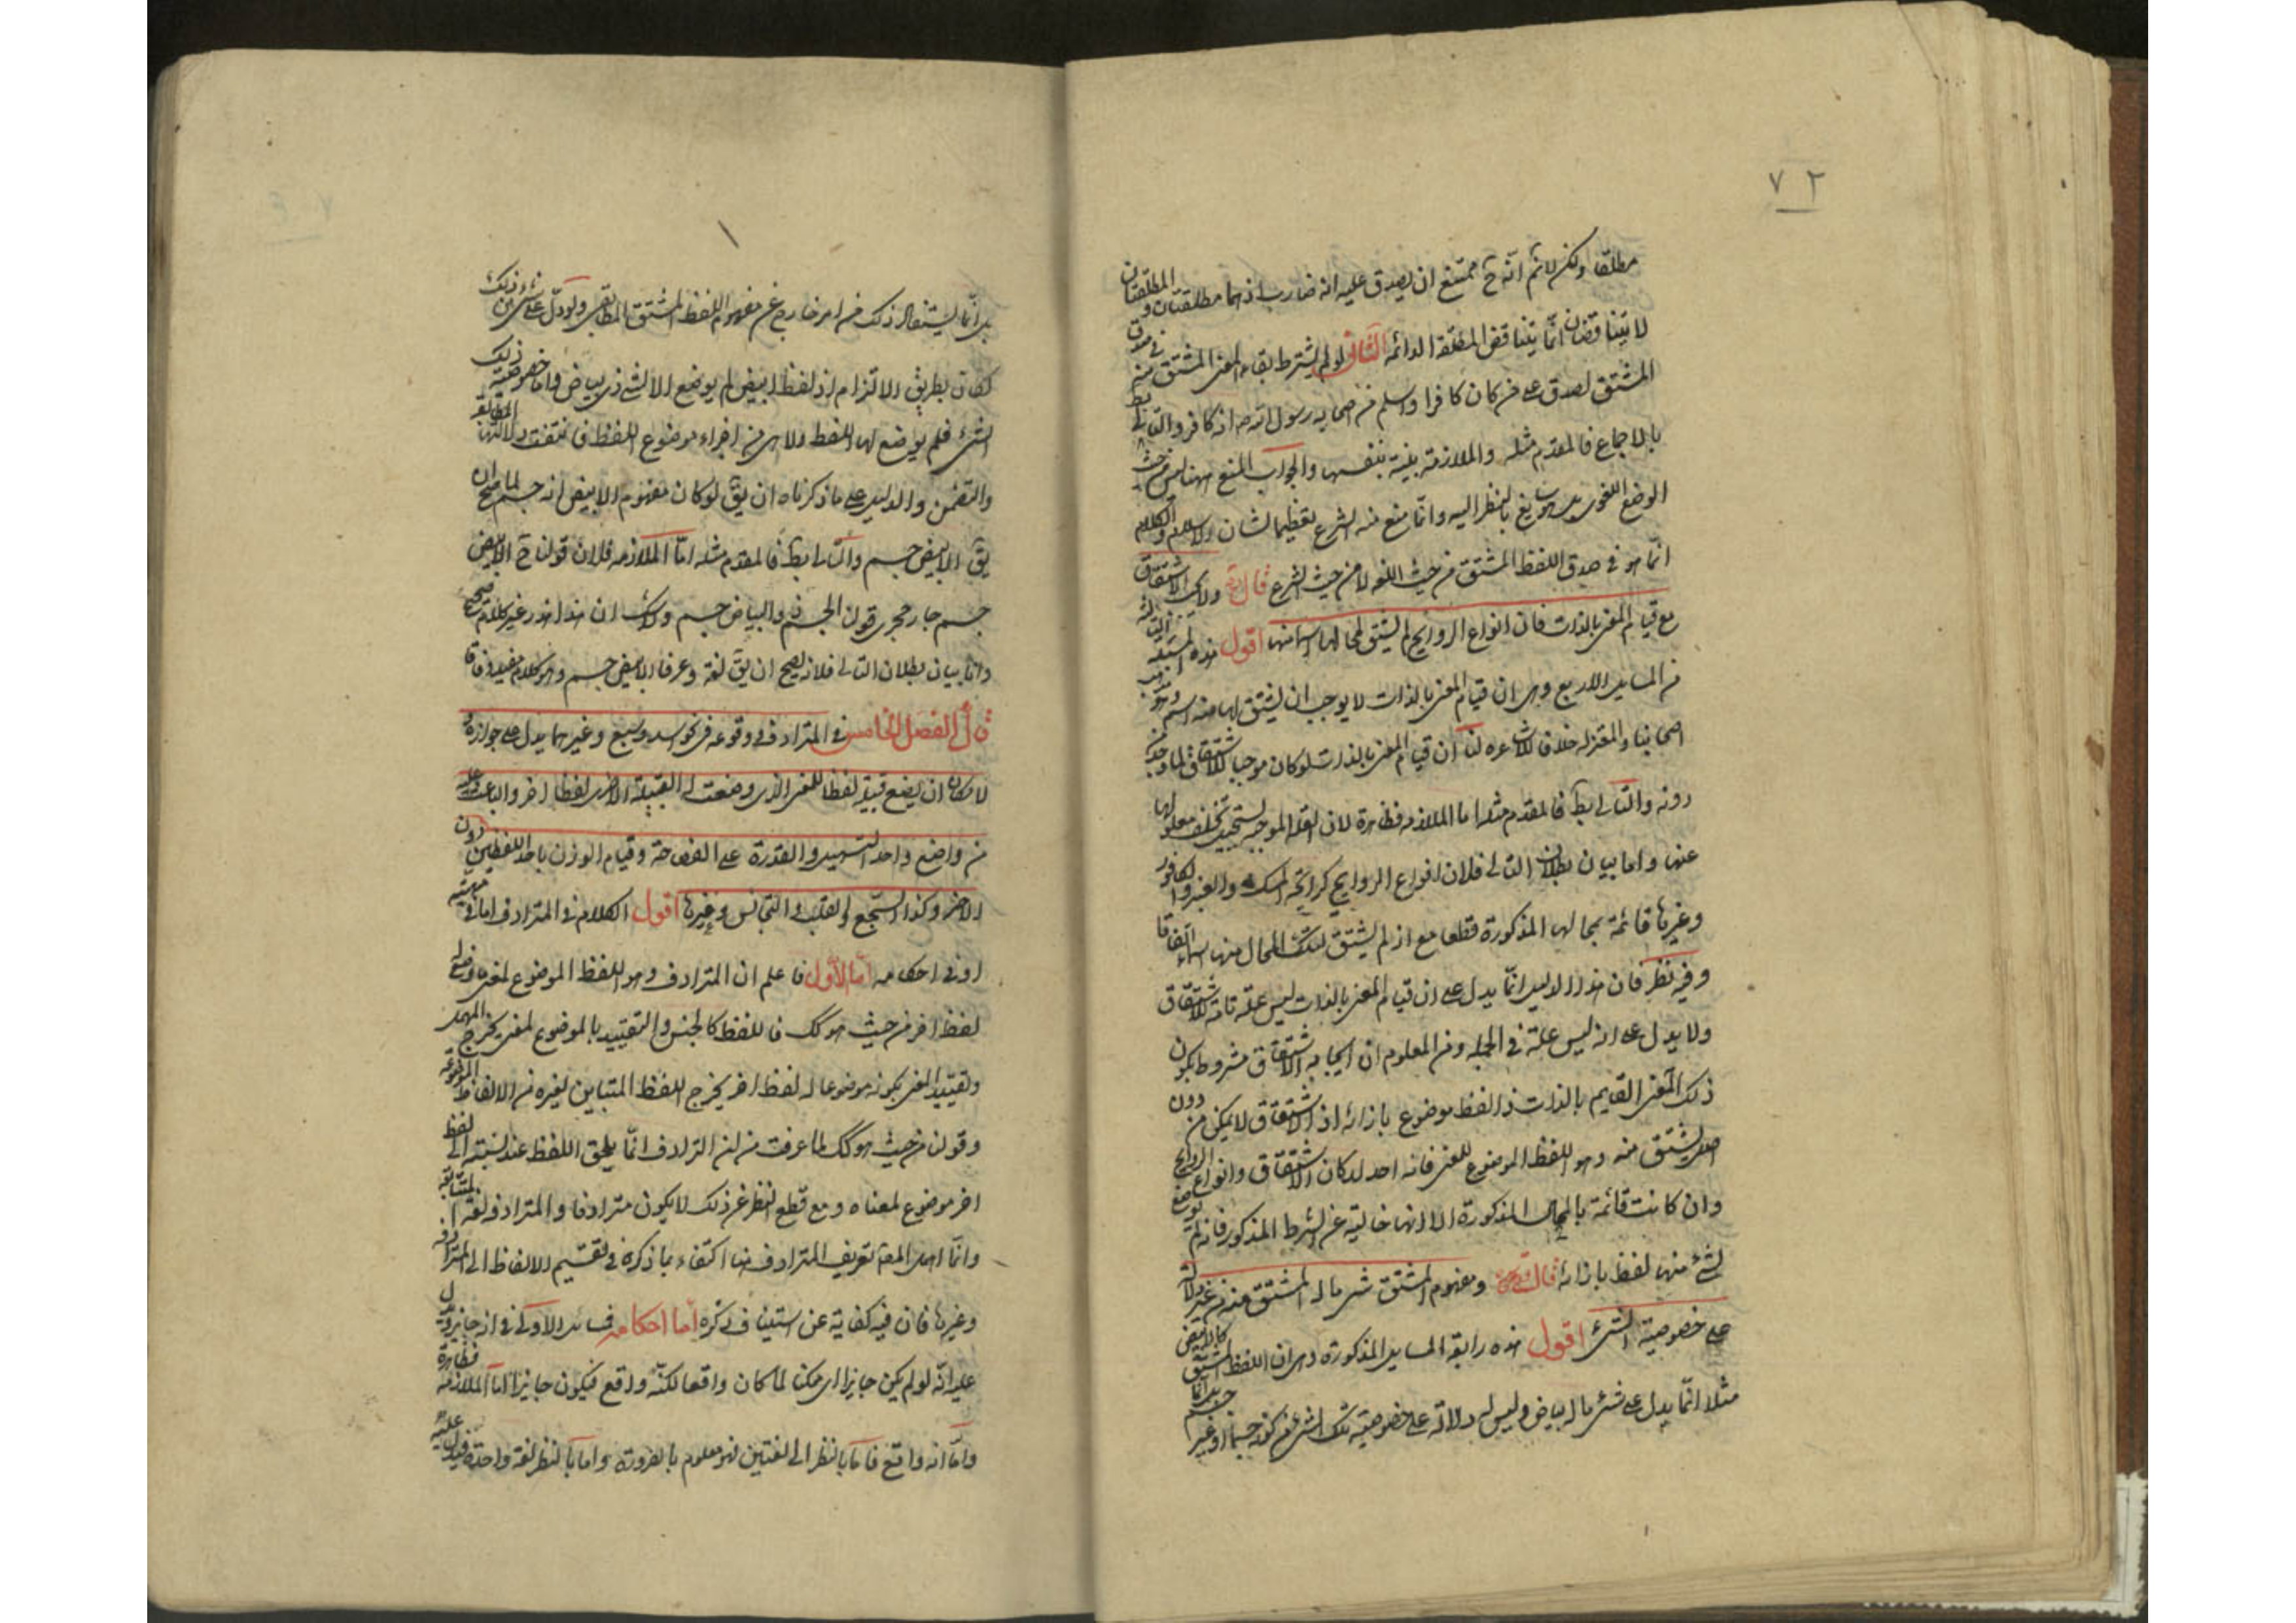 ٧٢
مطلقا ولكن لا نم انه ح يمتنع ان يصدق عليه انه ضارب اذ هما مطلقتان والمطلقتان
لا يتناقضان انما يتناقض المطلقة الدائمه الثانى لو لم يشترط بقاء المعنى المشتق منه فى صدق
المشتق لصدق على من كان كافرا واسلم من صحابه رسول الله انه كافر والتالى بط
بالاجماع فالمقدم مثله والملازمة بينة بنفسها والجواب المنع ههنا ليس من حيث
الوضع اللغوى بل هو سايغ بالنظر اليه وانما منع منه الشرع تعظيما لشان الاسلام والكلام
انما هو فى صدق اللفظ المشتق من حيث اللغه لا من حيث الشرع قال ولا يجب الاشتقاق
مع قيام المعنى بالذات فان انواع الروايح لم يشتق لمحالها اسما منها اقول هذه المسئلة الثالثة
من المسايل الاربع وهى ان قيام المعنى بالذات لا يوجب ان يشتق لها منه اسم وهو مذهب
اصحابنا والمعتزله خلافا للاشاعره لنا ان قيام المعنى بالذات لو كان موجبا للاشتقاق لما وجد من
دونه والتالى بط فالمقدم مثله اما الملازمه فظاهرة لان العلة الموجبه يستحيل تخلف معلولها
عنها واما بيان بطلان التالى فلان انواع الروايح كرائحة المسك والعنبر والكافور
وغيرها قائمة بمحالها المذكورة قطعا مع انه لم يشتق لتلك المحال منها اسماء اتفاقا
وفيه نظر فان هذا الدليل انما يدل على ان قيام المعنى بالذات ليس علة تامة للاشتقاق
ولا يدل على انه ليس علة فى الجمله ومن المعلوم ان ايجابه الاشتقاق مشروط بكون
ذلك المعنى القايم بالذات ذا لفظ موضوع بازائه اذ الاشتقاق لا يمكن من دون
اصل يشتق منه وهو اللفظ الموضوع للمعنى فانه احد اركان الاشتقاق وانواع الروايح
وان كانت قائمة بالمحال المذكورة الا انها خالية عن الشرط المذكور فانه لم يوضع
لشئ منها لفظ بازائه قال ومفهوم المشتق شئ ما له المشتق منه من غير دلالة
على خصوصية الشئ اقول هذه رابعة المسايل المذكورة وهى ان اللفظ المشتق كالابيض
مثلا انما يدل على شئ ما له البياض وليس له دلالة على خصوصية ذلك الشئ من كونه جسما او غير
بل انما يستفاد ذلك من امر خارج عن مفهوم اللفظ المشتق المطابقى ولو دل على شئ من ذلك
لكان بطريق الالتزام اذ لفظ ابيض لم يوضع الا لشئ ذى بياض واما خصوصية ذلك
الشئ فلم يوضع لها اللفظ ولا هى من اجزاء موضوع اللفظ فانتفت دلالتها المطابقة
والتضمن والدليل على ما ذكرناه ان يق لو كان مفهوم الابيض انه جسم لما صح ان
يق الابيض جسم والتالى بط فالمقدم مثله اما الملازمه فلان قولنا ح الابيض
جسم جار مجرى قولنا الجسم ذو البياض جسم ولا شك ان هذا هذر غير كلام صحيح
واما بيان بطلان التالى فلانه يصح ان يق لغة وعرفا الابيض جسم وهو كلام مفيد وفاقا
قال الفصل الخامس فى المترادف ووقوعه فى نحو اسد وسبع وغيرهما يدل على جوازه
لامكان ان يضع قبيلة لفظا للمعنى الذى وضعت له القبيلة الاخرى لفظا اخر والباعث عليه
من واضع واحد التسهيل والقدرة على الفصاحة وقيام الوزن باحد اللفظين دون
الاخر وكذا السجع والقلب والتجانس وغيرها اقول الكلام فى المترادف اما فى ماهيته
او فى احكامه اما الاول فاعلم ان المترادف هو اللفظ الموضوع لمعنى وضع له
لفظ اخر من حيث هو كك فاللفظ كالجنس والتقييد بالموضوع لمعنى يخرج المهمل
وتقييد المعنى بكونه موضوعا له لفظ اخر يخرج اللفظ المتباين لغيره من الالفاظ الموضوعة
وقولنا من حيث هو كك لما عرفت من ان الترادف انما يلحق اللفظ عند نسبته الى لفظ
اخر موضوع لمعناه ومع قطع النظر عن ذلك لا يكون مترادفا والمترادف لغة المتتابع
وانما اهمل المصـ تعريف المترادف هنا اكتفاء بما ذكره فى تقسيم الالفاظ الى المترادفه
وغيرها فان فيه كفاية عن استيناف ذكره اما احكامه فمسائل الاولى فى انه جايز ويدل
عليه انه لو لم يكن جايزا اى ممكنا لما كان واقعا لكنه واقع فيكون جايزا اما الملازمه فظاهرة
واما انه واقع فاما بالنظر الى لغتين فهو معلوم بالضرورة واما بالنظر لغة واحدة فيدل عليه